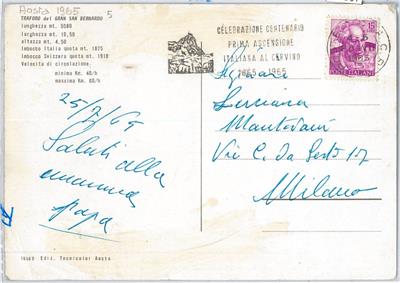 Aosta 1965
5
TRAFORO del GRAN SAN BERNARDO
lunghezza mt. 5580
larghezza mt. 10,50
altezza mt. 4,50
Imbocco Italia quota mt. 1875
Imbocco Svizzera quota mt. 1918
Velocità di circolazione:
minima Km. 40/h
massima Km. 80/h
CELEBRAZIONE CENTENARIO
PRIMA ASCENSIONE
ITALIANA AL CERVINO
1865 - 1965
15
POSTE ITALIANE
25/7/65
Saluti alla
mamma
papà
Luciana
Via C. da Sesto 17
Milano
Ediz. Tecnicolor Aosta